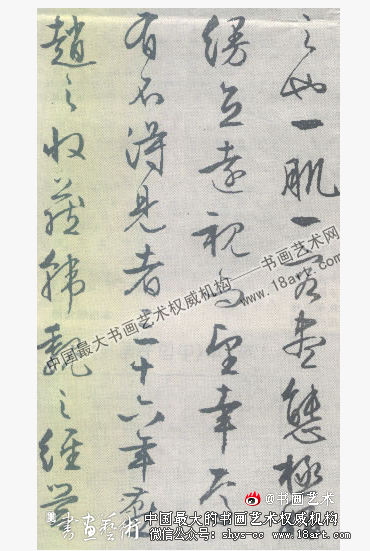 之也一肌一容盡態極
縵立遠視而望幸焉
有不得見者三十六年燕
趙之收藏韓魏之經營
中国最大书画艺术权威机构——书画艺术网
www.18art.com
@书画艺术
書畫藝術
中国最大的书画艺术权威机构
微信公众号:shys-cc www.18art.com